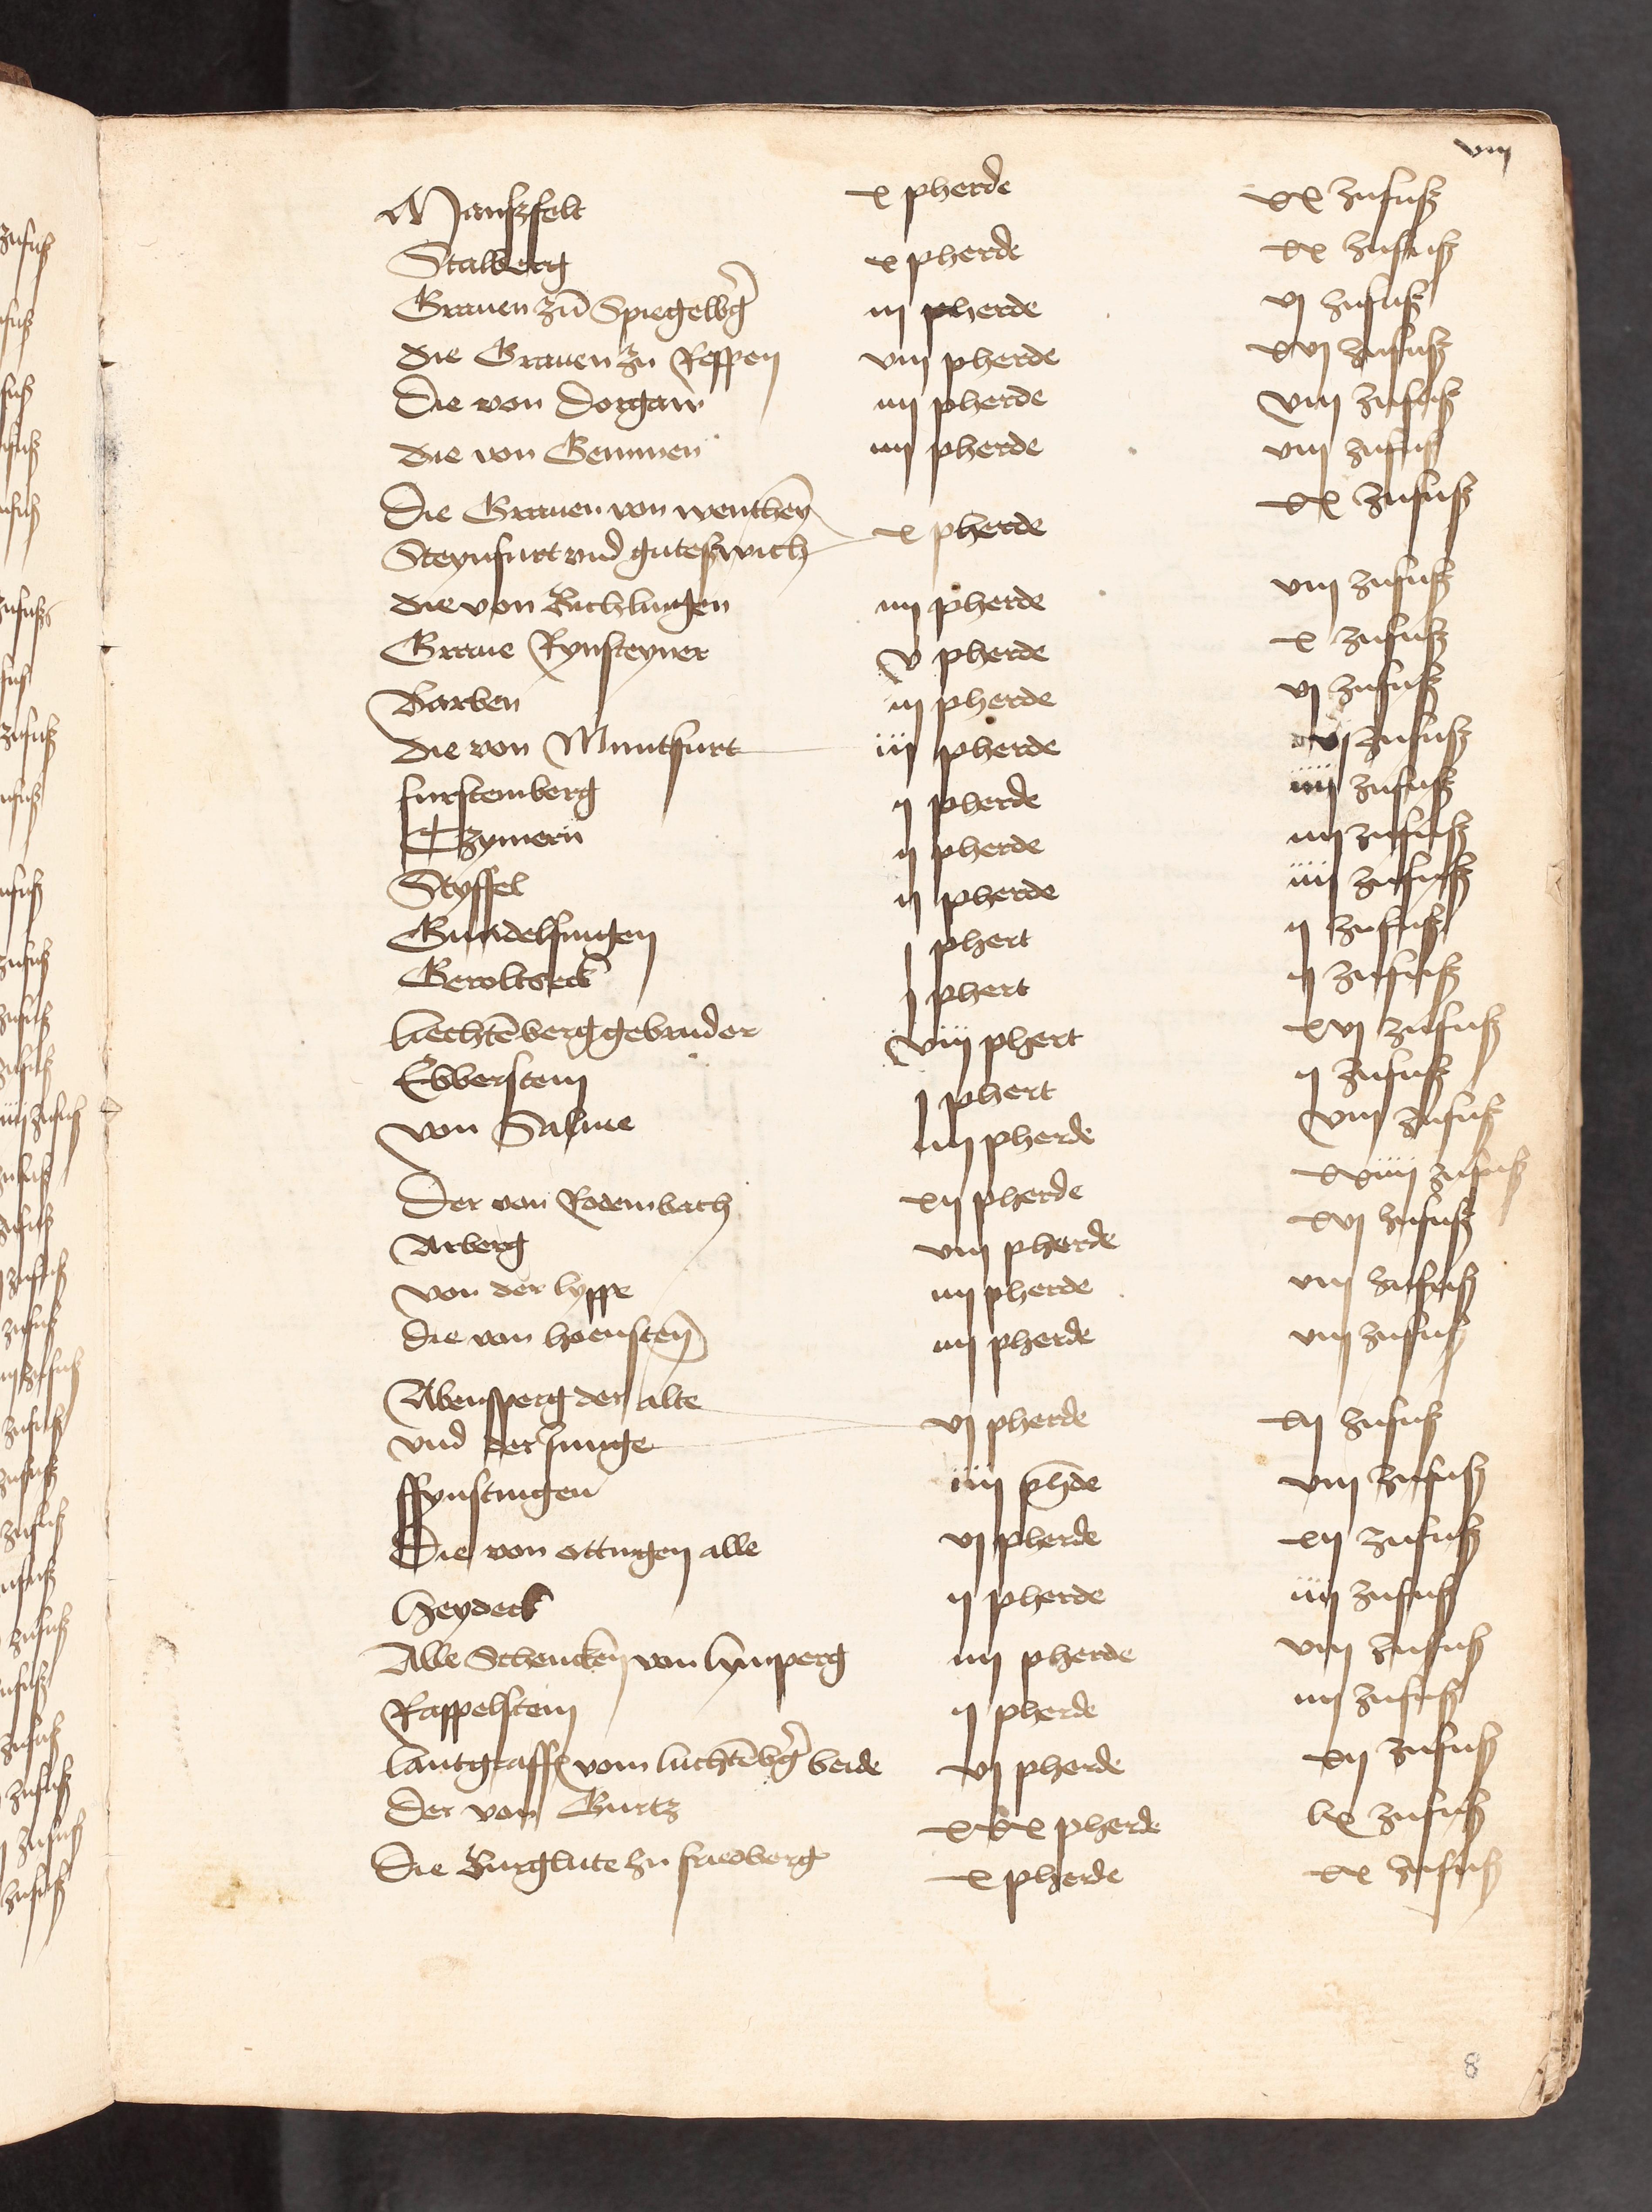 viij
Manszfelt x pherde xx zufusz
Stalberg x pherde xx zufusz
Grauen zů Spiegelbg̃ iij pherde vj zufusz
die Grauen zu Reppen viij pherde xvj zufusz
Die von Dorgaw iiij pherde viij zufusz
die von Gemmen iiij pherde viij zufusz
Die Grauen von wentheỹ xx zufusz
Steynfurt vnd guteszwich x pherde
die von Bichlingen iiij pherde viij zufusz
Graue Rynsteyner v pherde x zufusz
Barben iij pherde vj zufusz
die von Muntfurt iij pherde vj zufusz
furstemberg ij pherde iiij zufusz
Tzymern ij pherde iiij zufusz
Styffel ij pherde iiij zufusz
Gundelfingen j phert ij zufusz
Geroltseck j phert ij zufusz
liechtēberg gebruder viij phert xvj zufusz
Ebberstein j phert ij zufusz
von Salme iiij pherde viij zufusz
Der von Rodembach xij pherde xxiiij zufusz
Arberg viij pherde xvj zufusz
von der lyppe iiij pherde viij zufusz
die von hoensteỹ iiij pherde viij zufusz
Abensperg der alte
vnd der Junge vj pherde xij zufusz
ffynstingen iiij ph̃de viij zufusz
Die von ottingen alle vj pherde xij zufusz
Heydeck ij pherde iiij zufusz
Alle Schencken von lymperg iiij pherde viij zufusz
Rappelstein ij pherde iiij zufusz
lantgraffen vom luchtēbg̃ beide vj pherde xij zufusz
Der von Gurtz xxx pherde lx zufusz
Die Burglute zu friedberg x pherde xx zufusz
8